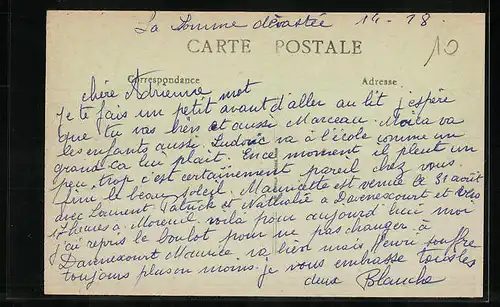 La Somme dévastée 14-18.
CARTE POSTALE
10
Correspondance
Adresse
chère Adrienne
Je te fais un petit mot avant d'aller au lit j'espère
que tu vas bien et aussi Marceau. Moi la va
les enfants aussi. Ludovic va à l'école comme un
grand ca lui plait. En ce moment il pleut un
peu trop c'est certainement pareil chez vous.
fini le beau soleil. Mauricette est venue le 31 août
avec Laurent Patrick et Nathalie à Davenescourt et
17 heures a Moreuil. voilà pour aujourd'hui moi
j'ai repris le boulot pour ne pas changer à
Davenescourt Maurice va bien mais Henri souffre
toujours plus ou moins. je vous embrasse tous les
deux Blanche